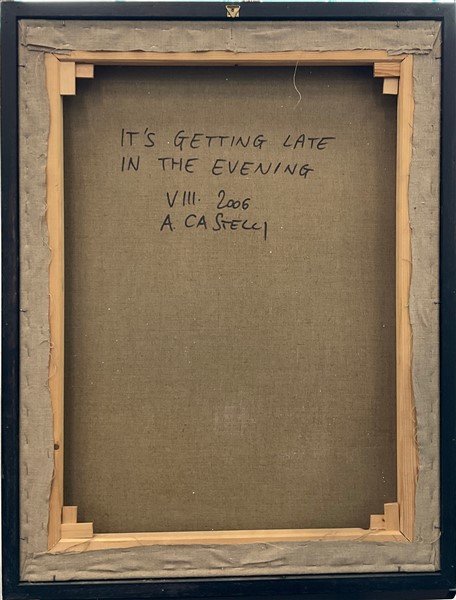 IT'S GETTING LATE
IN THE EVENING
VIII. 2006
A. CASTELLI